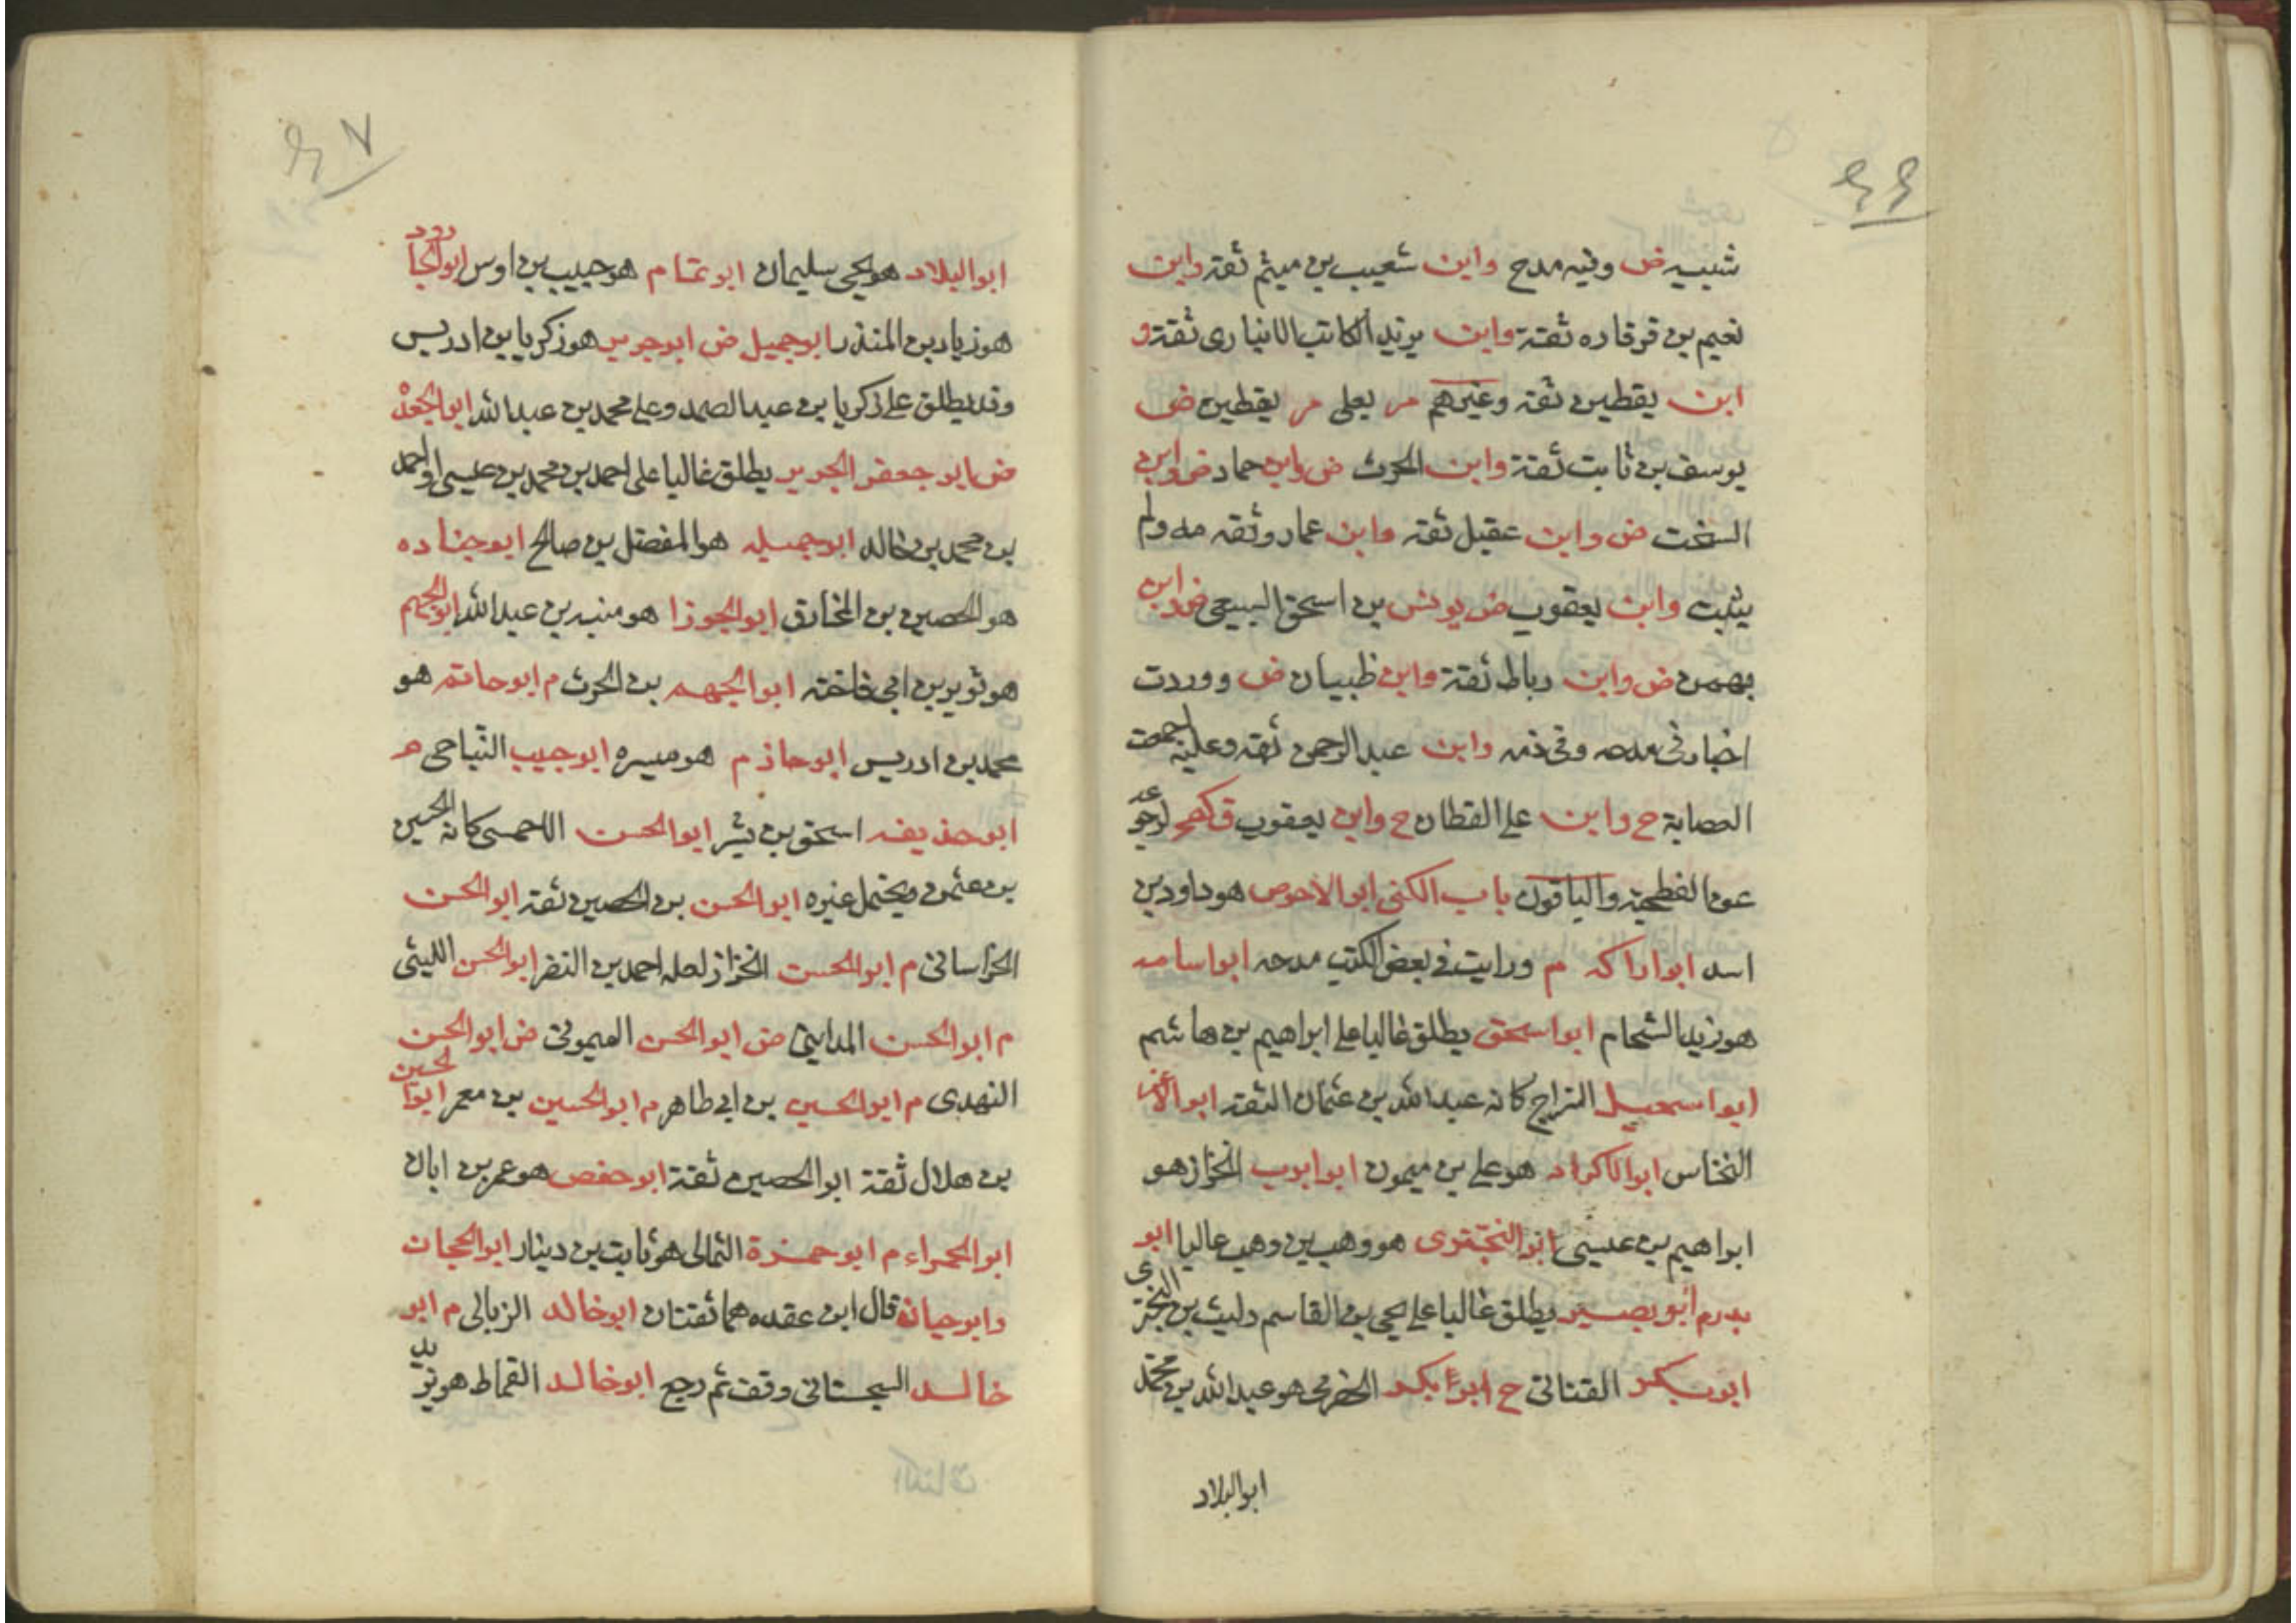 ٤٤
شيبه ض وفيه مدح وابن شعيب بن ميثم ثقة وابن
نعيم بن قرقاره ثقة وابن يزيد الكاتب الانباري ثقة و
ابن يقطين ثقة وغيرهم م يعلى م يقطين ض
يوسف بن ثابت ثقة وابن الحرث ض وابن حماد ض وابن
السخت ض وابن عقيل ثقة وابن عمار وثقه مه ولم
يثبت وابن يعقوب ض يونس بن اسحق السبيعي ض وابن
بهمن ض وابن رباط ثقة وابن ظبيان ض ووردت
اخبار في مدحه وفي ذمه وابن عبد الرحمن ثقة وعليه اجمعت
العصابة ح وابن علي القطان ح وابن يعقوب ق
عن الفطحية والباقون باب الكنى ابو الاحوص هو داود بن
اسد ابو اراكه م ورايت في بعض الكتب مدحه ابو اسامه
هو زيد الشحام ابو اسحق يطلق غالبا على ابراهيم بن هاشم
ابو اسمعيل السراج كانه عبد الله بن عثمان الثقة ابو الاغر
النخاس ابو الاكراد هو علي بن ميمون ابو ايوب الخزاز هو
ابراهيم بن عيسى ابو البختري هو وهب بن وهب غالبا ابو
بدر م ابو بصير يطلق غالبا على يحيى بن القاسم وليث بن البختري
ابو بكر القناني ح ابو بكر الحضرمي هو عبد الله بن محمد
ابو البلاد
٤٧
ابو البلاد هو يحيى سليمان ابو تمام هو حبيب بن اوس ابو الجارود
هو زياد بن المنذر ابو جميل ض ابو جرير هو زكريا بن ادريس
وقد يطلق على زكريا بن عبد الصمد وعلى محمد بن عبد الله ابو الجعد
ض ابو جعفر الجرير يطلق غالبا على احمد بن محمد بن عيسى واحمد
بن محمد بن خالد ابو جميله هو المفضل بن صالح ابو جناده
هو الحصين بن المخارق ابو الجوزا هو منبه بن عبد الله ابو الجهم
هو ثوير بن ابي فاخته ابو الجهم بن الحرث م ابو حاتم هو
محمد بن ادريس ابو حازم هو ميسره ابو حبيب النباجي م
ابو حذيفه اسحق بن بشر ابو الحسن الاحمسي كانه الحسين
بن عثمن ويحتمل غيره ابو الحسن بن الحصين ثقة ابو الحسن
الخراساني م ابو الحسن الخزاز لعله احمد بن النضر ابو الحسن الليثي
م ابو الحسن المدايني ض ابو الحسن الميموني ض ابو الحسن
النهدى م ابو الحسين بن ابي طاهر م ابو الحسين بن معمر ابو الحسين
بن هلال ثقة ابو الحصين ثقة ابو حفص هو عمر بن ابان
ابو الحمراء م ابو حمزة الثمالى هو ثابت بن دينار ابو الحجات
وابو حيان قال ابن عقده هما ثقتان ابو خالد الزبالى م ابو
خالد السجستاني وقف ثم رجع ابو خالد القماط هو يزيد